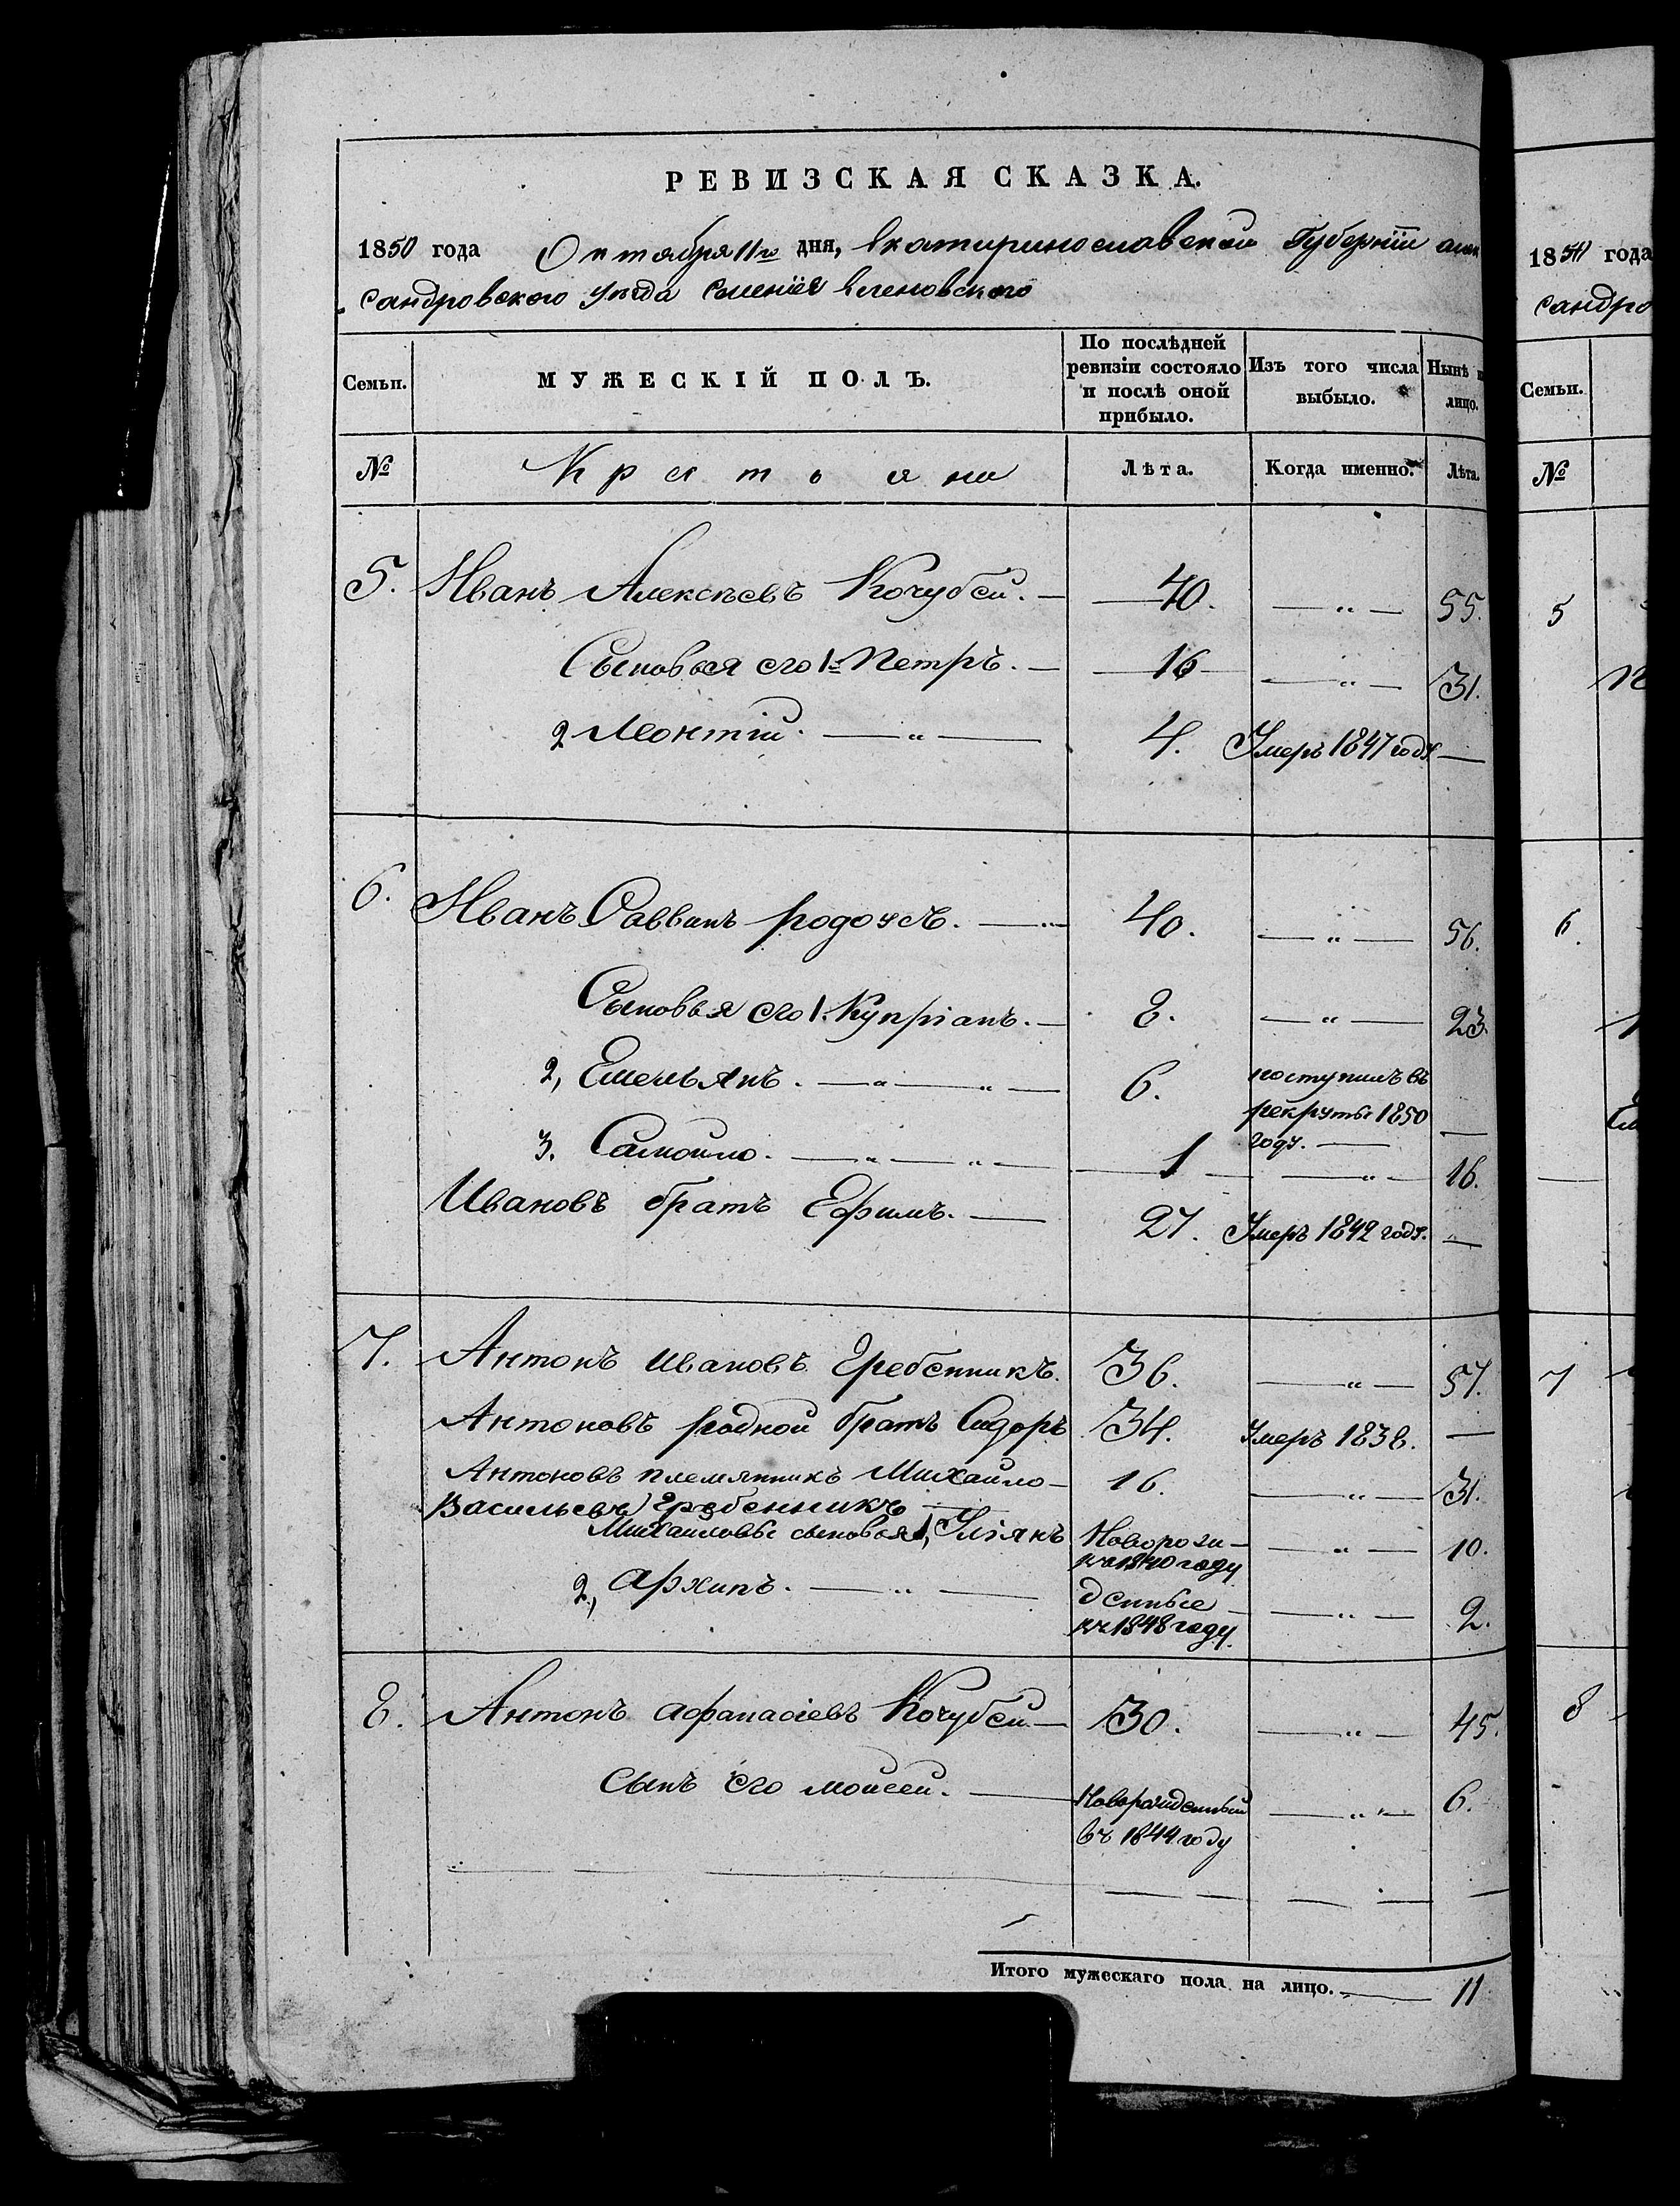 РЕВИЗСКАЯ СКАЗКА.
1850 года Октября 11го дня, Екатеринославской Губерніи алек
сандровского уезда Селенія Еленовского
Семьи. МУЖЕСКІЙ ПОЛЪ. По послѣдней ревизіи состояло и послѣ оной прибыло. Изъ того числа выбыло. Нынѣ на лицо.
№ Крестьяне Лѣта. Когда именно. Лѣта.
5. Иванъ Алексѣевъ Кочубей. — 40. — „ — 55.
Сыновья его 1й Петръ. — 16 — „ — 31.
2 Леонтій. — „ — 4. Умеръ 1847 года —
6. Иванъ Саввинъ — „ 40. — „ — 56.
Сыновья его 1. Купріанъ. — 8. — „ — 23.
2, Емельянъ. — „ — „ — 6. поступилъ въ
рекруты 1850
году. — —
3. Самойло. — „ — „ — 1 — „ — 16.
Ивановъ братъ Ефимъ. — 27. Умеръ 1842 года. —
7. Антонъ Ивановъ Гребенникъ. 36. — „ — 51.
Антоновъ родной братъ Сидоръ 34. Умеръ 1838. —
Антоновъ племянникъ Михайло — 16. — „ — 31.
Васильевъ Гребенникъ —
Михайловы сыновья 1, Уліянъ Новорож —
въ 1840 году — „ — 10.
2, Архипъ. — „ — денные —
въ 1848 году. — „ — 2.
8. Антонъ Афанасіевъ Кочубей — 30. — „ — 45.
Сынъ его Моисей. — Новорожденный
въ 1844 году — „ — 6.
Итого мужескаго пола на лицо. — 11
1850 года
сандро
Семьи.
№
5
6.
7
8